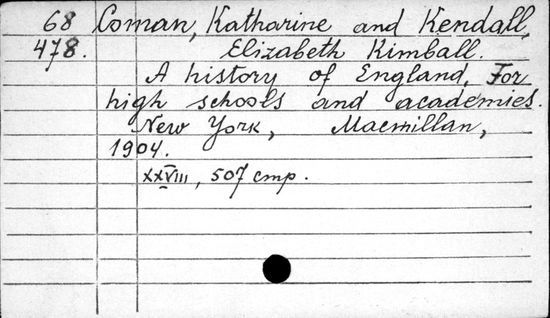 68 Coman, Katharine and Kendall,
478. Elizabeth Kimball.
A history of England, For
high schools and academies.
New York, Macmillan,
1904.
XXVIII, 507 стр.